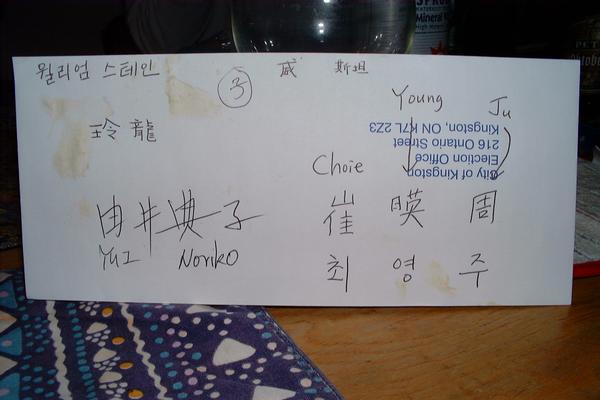 윌리엄 스테인
子
威 斯坦
Young Ju
玲龍
City of Kingston
Election Office
216 Ontario Street
Kingston, ON K7L 2Z3
Choie
由井典子
崔 暎 周
Yui Noriko
최 영 주
Mineral